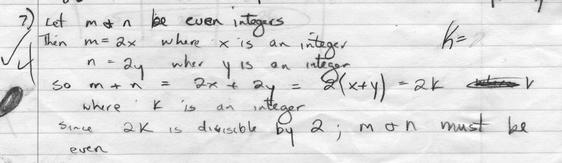 7) Let m & n be even integers
Then m = 2x where x is an integer
n = 2y wher y is an integer
K=
so m + n = 2x + 2y = 2(x+y) = 2K
where K is an integer
Since 2K is divisible by 2 ; m + n must be
even